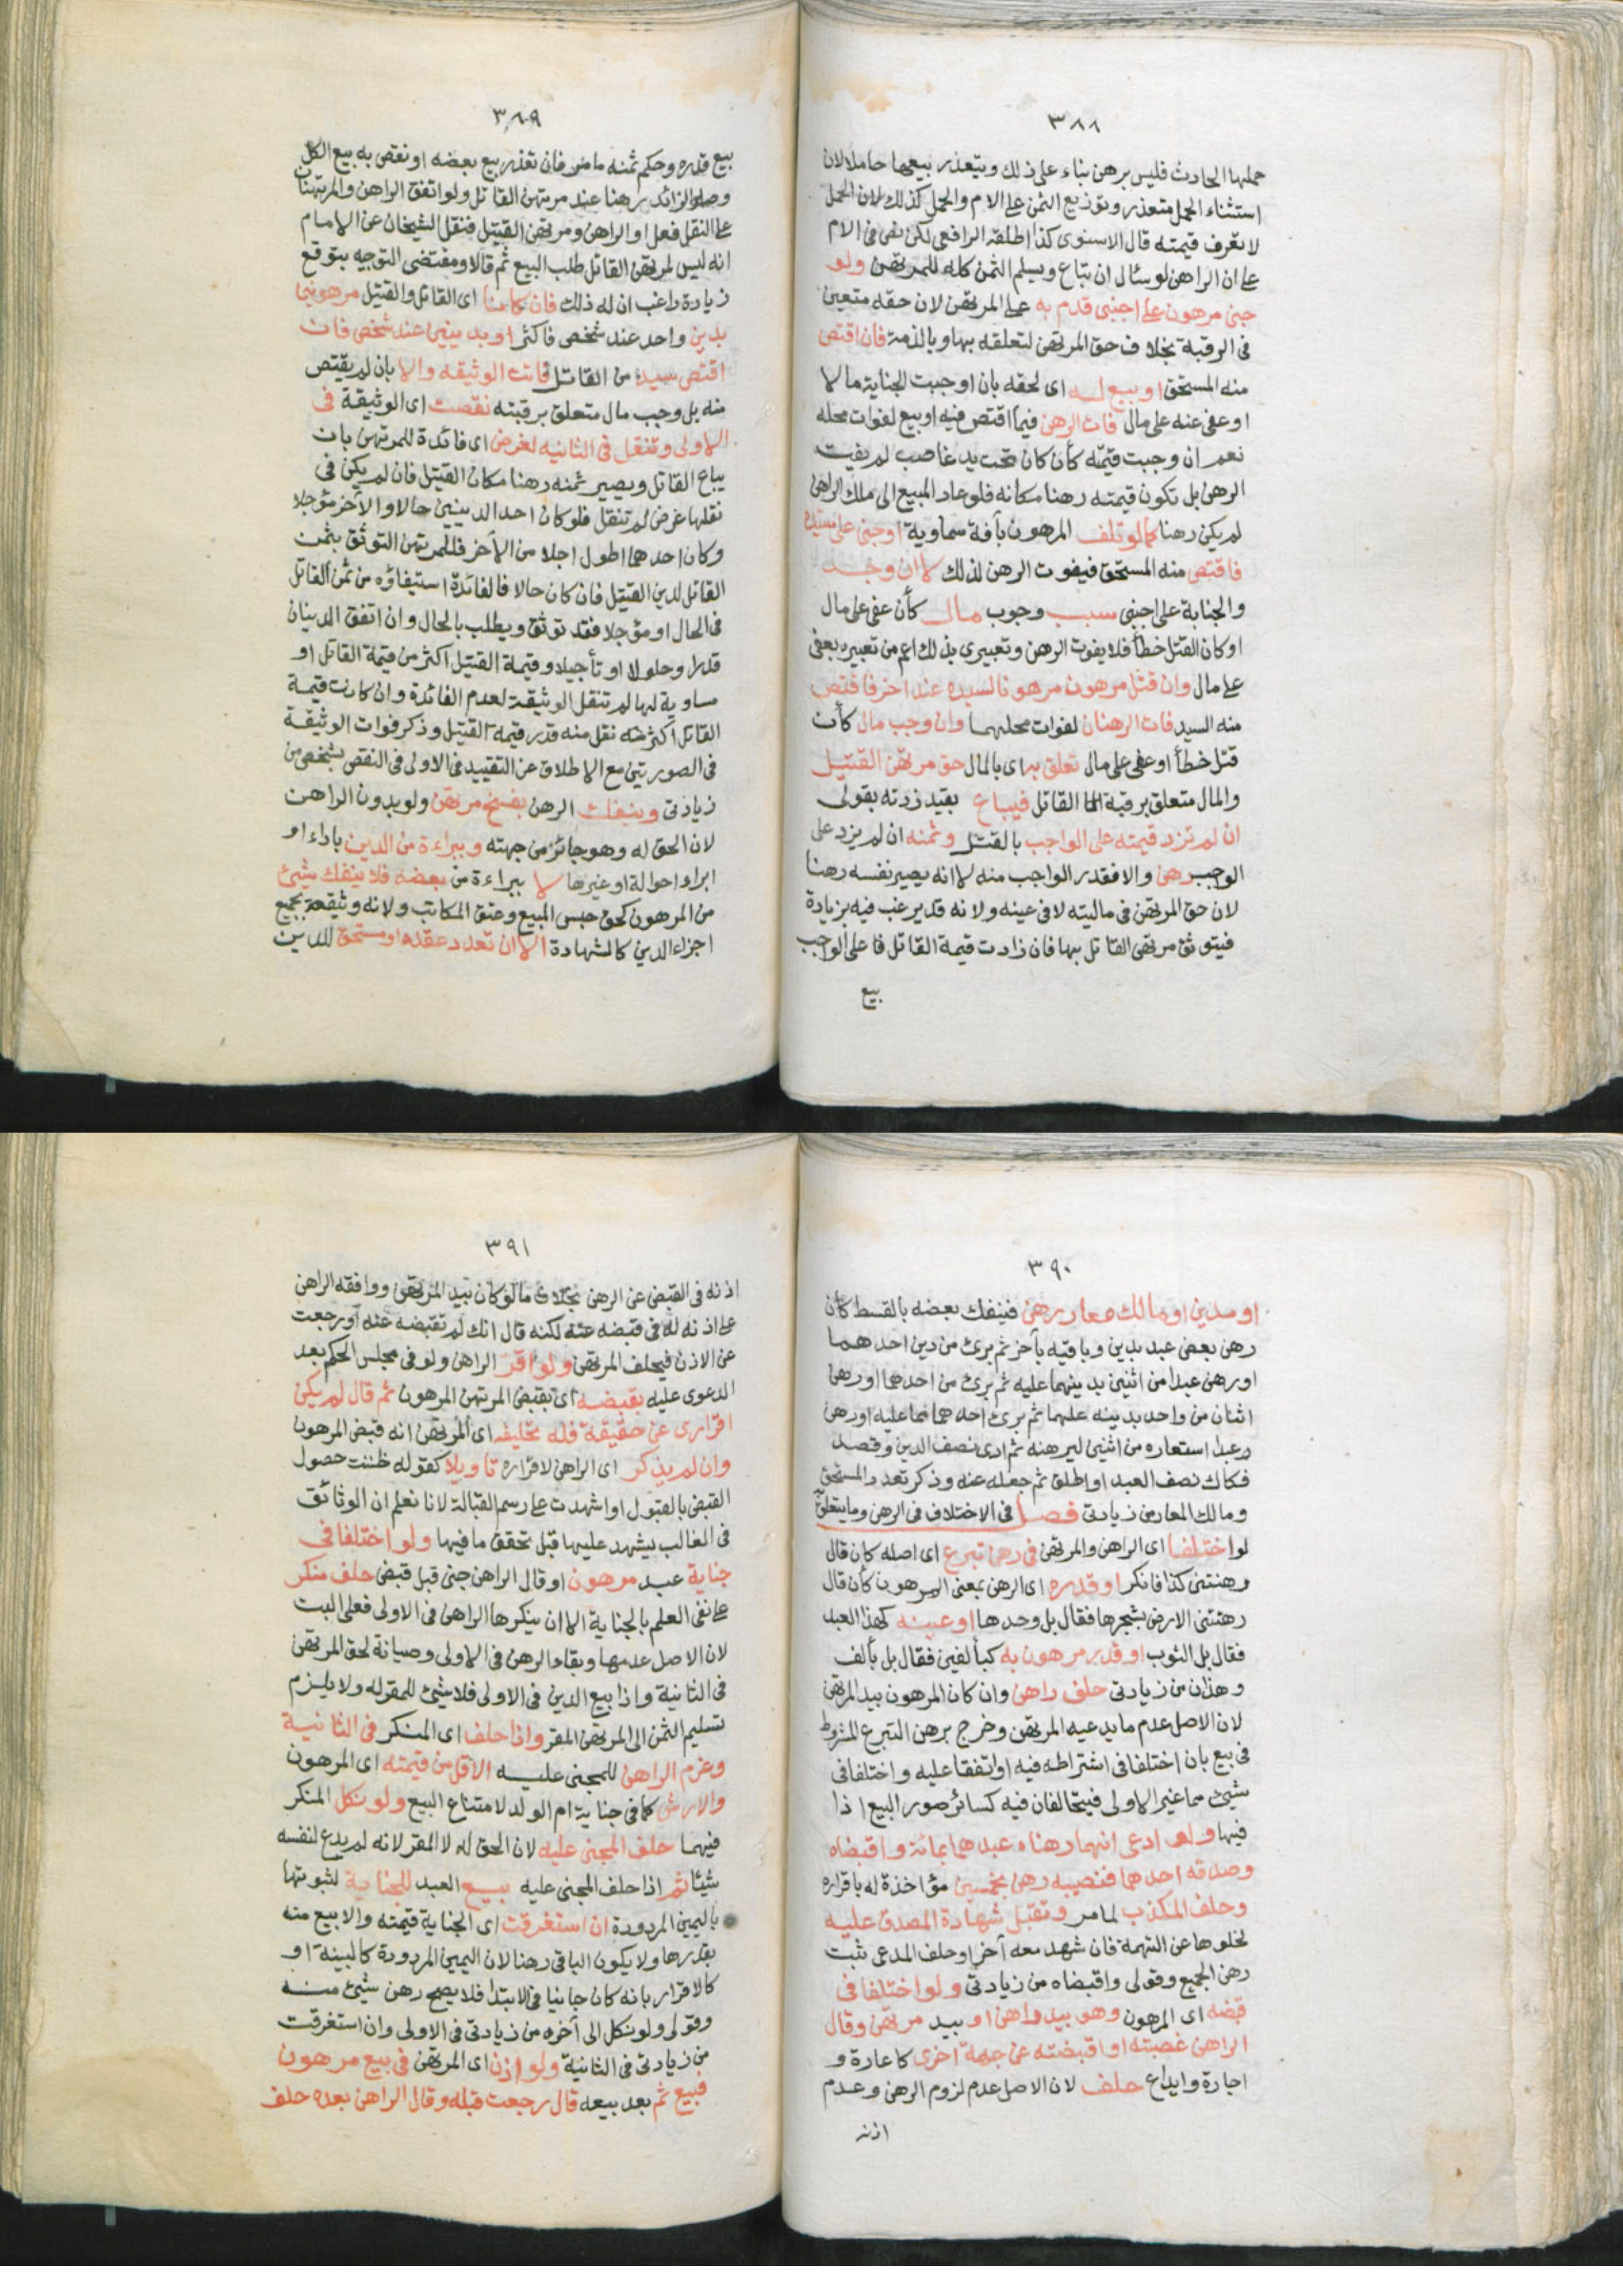 ٣٨٨
حملها الحادث فليس برهن بناء على ذلك ويتعذر بيعها حاملا لان
استثناء الحمل متعذر وتوزيع الثمن على الام والحمل كذلك لان الحمل
لا يعرف قيمته قال الاسنوى كذا اطلقه الرافعى لكن نص فى الام
على ان الراهن لو سئال ان تباع ويسلم الثمن كله للمرتهن ولو
جنى مرهون على اجنبى قدم به على المرتهن لان حقه متعين
فى الرقبة بخلاف حق المرتهن لتعلقه بها وبالذمة فان اقتص
منه المستحق او بيع له اى لحقه بان اوجبت الجناية مالا
او عفى عنه على مال فات الرهن فيما اقتص فيه او بيع لفوات محله
نعم ان وجبت قيمته كأن كان تحت يد غاصب لم يفت
الرهن بل تكون قيمته رهنا مكانه فلو عاد المبيع الى ملك الراهن
لم يكن رهنا كما لو تلف المرهون بآفة سماوية او جنى على سيده
فاقتص منه المستحق فيفوت الرهن لذلك لا ان وجد
والجناية على اجنبى سبب وجوب مال كأن عفى على مال
او كان القتل خطأ فلا يفوت الرهن وتعبيرى بذلك اعم من تعبيره بعفى
على مال وان قتل مرهون مرهونا لسيده عند اخر فاقتص
منه السيد فات الرهنان لفوات محلهما وان وجب مال كأن
قتل خطأ او عفى على مال تعلق به اى بالمال حق مرتهن القتيل
والمال متعلق برقبة القاتل فيباع بقيد زدته بقولى
ان لم تزد قيمته على الواجب بالقتل وثمنه ان لم يزد على
الواجب رهن والا فقدر الواجب منه لا انه يصير نفسه رهنا
لان حق المرتهن فى ماليته لا فى عينه ولانه قد يرغب فيه بزيادة
فيتوثق مرتهن القاتل بها فان زادت قيمة القاتل فا على الواجب
بيع
٣٨٩
بيع قدره وحكم ثمنه ما مر فان تعذر بيع بعضه او نقص به بيع الكل
وصار الزائد رهنا عند مرتهن القاتل ولو اتفق الراهن والمرتهنان
على النقل فعل او الراهن ومرتهن القتيل فنقل الشيخان عن الامام
انه ليس لمرتهن القاتل طلب البيع ثم قالا ومقتضى التوجيه بتوقع
زيادة راغب ان له ذلك فان كانا اى القاتل والقتيل مرهونين
بدين واحد عند شخص فاكثر او بدينين عند شخص فان
اقتص سيد من القاتل فاتت الوثيقه والا بان لم يقتص
منه بل وجب مال متعلق برقبته نقصت اى الوثيقة فى
الاولى وتنقل فى الثانيه لغرض اى فائدة للمرتهن بان
يباع القاتل ويصير ثمنه رهنا مكان القتيل فان لم يكن فى
نقلها غرض لم تنقل فلو كان احد الدينين حالا والآخر مؤجلا
وكان احدهما اطول اجلا من الآخر فللمرتهن التوثق بثمن
القاتل لدين القتيل فان كان حالا فالفائدة استيفاؤه من ثمن القاتل
فى الحال او مؤجلا فقد توثق ويطلب بالحال وان اتفق الدينان
قدرا وحلولا او تأجيلا وقيمة القتيل اكثر من قيمة القاتل او
مساوية لها لم تنقل الوثيقة لعدم الفائدة وان كانت قيمة
القاتل اكثر منه نقل منه قدر قيمة القتيل وذكر فوات الوثيقة
فى الصورتين مع الاطلاق عن التقييد فى الاولى فى النقص بشخص من
زيادتى وينفك الرهن بفسخ مرتهن ولو بدون الراهن
لان الحق له وهو جائز من جهته وببراءة من الدين باداء او
ابراء او حوالة او غيرها لا ببراءة من بعضه فلا ينفك شيئ
من المرهون كحق حبس المبيع وعتق المكاتب ولانه وثيقة بجميع
اجزاء الدين كالشهادة الا ان تعدد عقده او مستحق للدين
٣٩٠
او مدين او مالك معار رهن فينفك بعضه بالقسط كأن
رهن بعض عبد بدين وباقيه بآخر ثم برئ من دين احدهما
او رهن عبدا من اثنين بدينهما عليه ثم برئ من احدهما او رهن
اثنان من واحد بدينه عليهما ثم برئ احدهما مما عليه او رهن
عبدا استعاره من اثنين ليرهنه ثم ادى نصف الدين وقصد
فكاك نصف العبد او اطلق ثم جعله عنه وذكر تعدد المستحق
ومالك المعار من زيادتى فصل فى الاختلاف فى الرهن وما يتعلق
لو اختلفا اى الراهن والمرتهن فى رهن تبرع اى اصله كأن قال
رهنتنى كذا فانكر او قدره اى الرهن بمعنى المرهون كأن قال
رهنتنى الارض بشجرها فقال بل وحدها او عينه كهذا العبد
فقال بل الثوب او قدر مرهون به كبألفين فقال بل بألف
وهذان من زيادتى حلف راهن وان كان المرهون بيد المرتهن
لان الاصل عدم ما يدعيه المرتهن وخرج برهن التبرع المشروط
فى بيع بان اختلفا فى اشتراطه فيه او اتفقا عليه واختلفا فى
شيئ مما غير الاولى فيتحالفان فيه كسائر صور البيع اذا
فيها ولو ادعى انهما رهناه عبدهما بمائة واقبضاه
وصدقه احدهما فنصيبه رهن بخمسين مؤاخذة له باقراره
وحلف المكذب لما مر وتقبل شهادة المصدق عليه
لخلوها عن التهمة فان شهد معه آخر او حلف المدعى ثبت
رهن الجميع وقولى واقبضاه من زيادتى ولو اختلفا فى
قبضه اى المرهون وهو بيد راهن او بيد مرتهن وقال
الراهن غصبته او اقبضته عن جهة اخرى كاعارة و
اجارة وايداع حلف لان الاصل عدم لزوم الرهن وعدم
اذنه
٣٩١
اذنه فى القبض عن الرهن بخلاف ما لو كان بيد المرتهن ووافقه الراهن
على اذنه له فى قبضه عنه لكنه قال انك لم تقبضه عنه او رجعت
عن الاذن فيحلف المرتهن ولو اقر الراهن ولو فى مجلس الحكم بعد
الدعوى عليه بقبضه اى بقبض المرتهن المرهون ثم قال لم يكن
اقرارى عن حقيقة فله تحليفه اى المرتهن انه قبض المرهون
وان لم يذكر اى الراهن لاقراره تاويلا كقوله ظننت حصول
القبض بالقبول او اشهدت على رسم القبالة لانا نعلم ان الوثائق
فى الغالب يشهد عليها قبل تحقق ما فيها ولو اختلفا فى
جناية عبد مرهون او قال الراهن جنى قبل قبض حلف منكر
على نفى العلم بالجناية الا ان ينكرها الراهن فى الاولى فعلى البت
لان الاصل عدمها وبقاء الرهن فى الاولى وصيانة لحق المرتهن
فى الثانية واذا بيع الدين فى الاولى فلا شيئ للمقر له ولا يلزم
تسليم الثمن الى المرتهن المقر واذا حلف اى المنكر فى الثانية
وغرم الراهن للمجنى عليه الاقل من قيمته اى المرهون
والارش كما فى جناية ام الولد لامتناع البيع ولو نكل المنكر
فيهما حلف المجنى عليه لان الحق له لا المقر لانه لم يدع لنفسه
شيئا ثم اذا حلف المجنى عليه بيع العبد للجناية لثبوتها
باليمين المردودة ان استغرقت اى الجناية قيمته والا بيع منه
بقدرها ولا يكون الباقى رهنا لان اليمين المردودة كالبينة او
كالاقرار بانه كان جانيا فى الابتدا فلا يصح رهن شيئ منه
وقولى ولو نكل الى آخره من زيادتى فى الاولى وان استغرقت
من زيادتى فى الثانية ولو اذن اى المرتهن فى بيع مرهون
فبيع ثم بعد بيعه قال رجعت قبله وقال الراهن بعده حلف